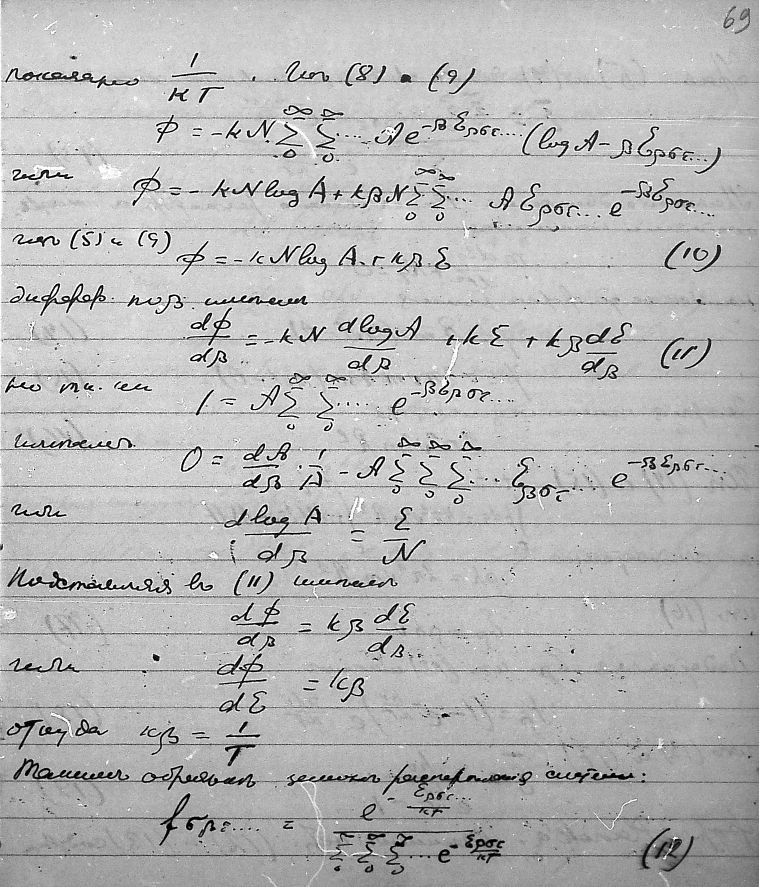 69
показано 1/кT. Из (8) и (9)
ϕ = -kN ∑₀^∞ ∑₀^∞ ... A e^{-βℰ_{ρστ...}} (log A - βℰ_{ρστ...})
или ϕ = -kN log A + kβN ∑₀^∞ ∑₀^∞ ... A ℰ_{ρστ...} e^{-βℰ_{ρστ...}}
из (5) и (9) ϕ = -kN log A + kβℰ (10)
дифер. по β имеем
dϕ/dβ = -kN dlogA/dβ + kℰ + kβ dℰ/dβ (11)
но т.
1 = A ∑₀^∞ ∑₀^∞ ... e^{-βℰ_{ρστ...}}
имеем
0 = dA/dβ · 1/A - A ∑₀^∞ ∑₀^∞ ∑₀^∞ ... ℰ_{ρστ...} e^{-βℰ_{ρστ...}}
или
dlogA/dβ = ℰ/N
Подставляя въ (11) имеем
dϕ/dβ = kβ dℰ/dβ
или
dϕ/dℰ = kβ
откуда кβ = 1/T
Таким образом распределения системы:
f_{σρτ...} = e^{-ℰ_{ρστ...}/кT} / ∑₀^∞ ∑₀^∞ ∑₀^∞ ... e^{-ℰ_{ρστ}/кT} (12)